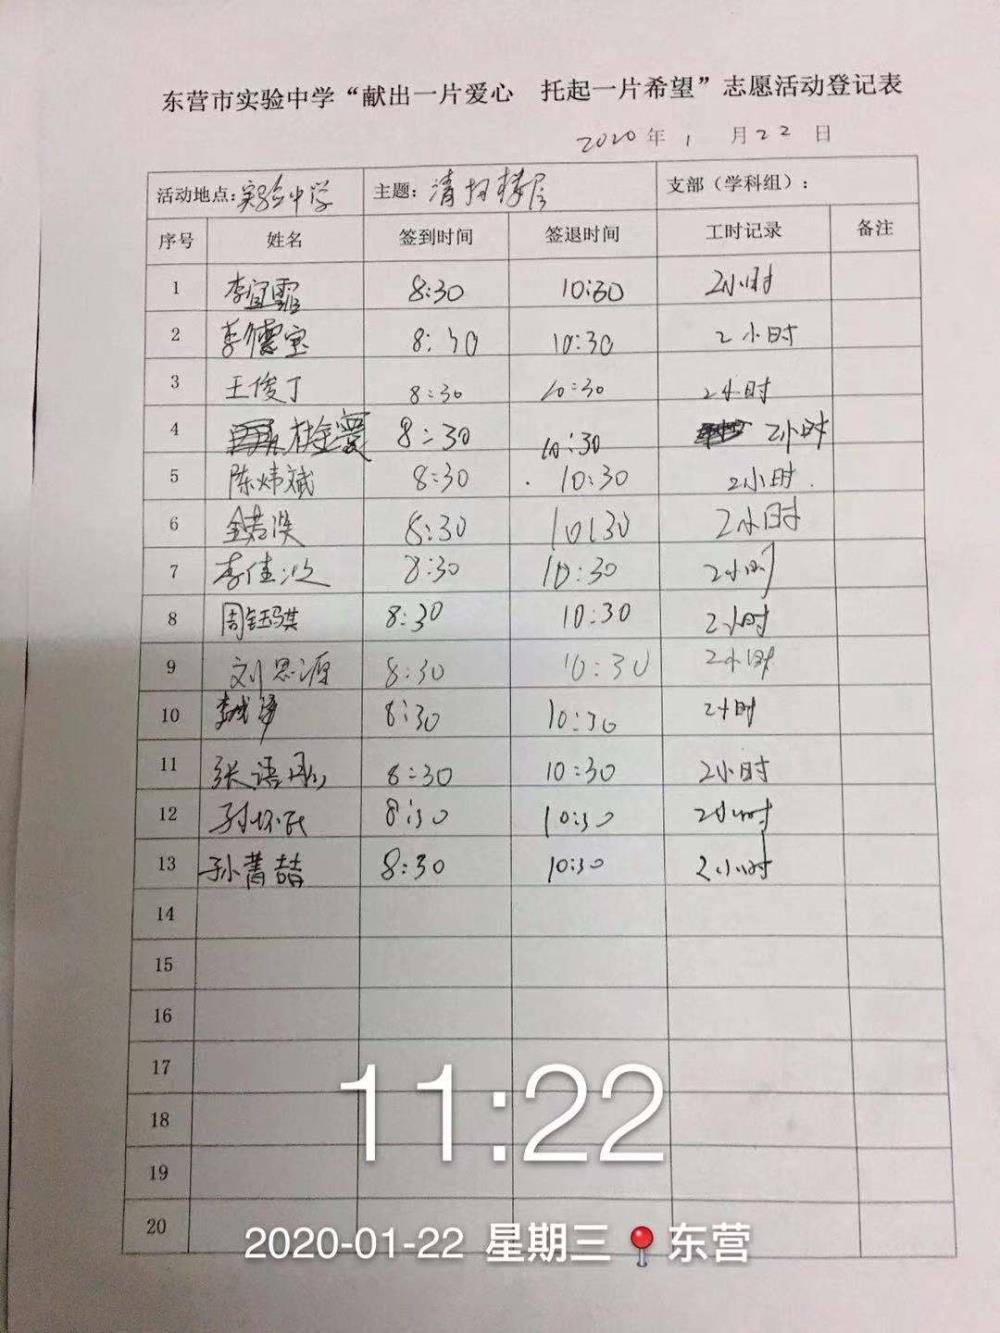 东营市实验中学“献出一片爱心 托起一片希望”志愿活动登记表
2020年1月22日
活动地点:实验中学 主题:清扫楼层 支部（学科组）:
序号 姓名 签到时间 签退时间 工时记录 备注
1 李宜霏 8:30 10:30 2小时
2 李德宝 8:30 10:30 2小时
3 王俊丁 8:30 10:30 2小时
4 8:30 10:30 2小时
5 陈炜斌 8:30 10:30 2小时
6 8:30 10:30 2小时
7 李佳 8:30 10:30 2小时
8 周钰琪 8:30 10:30 2小时
9 刘思源 8:30 10:30 2小时
10 8:30 10:30 2小时
11 张语 8:30 10:30 2小时
12 孙怀民 8:30 10:30 2小时
13 孙菁喆 8:30 10:30 2小时
14
15
16
17
18
19
20
11:22
2020-01-22 星期三 东营